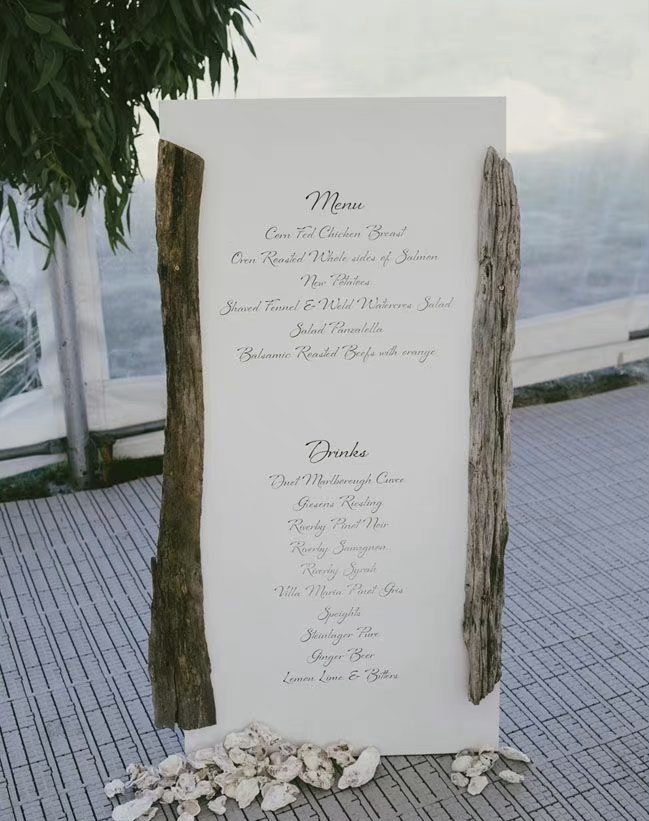 Menu
Corn Fed Chicken Breast
Oven Roasted Whole sides of Salmon
New Potatoes
Shaved Fennel & Weld Watercres Salad
Salad Panzalella
Balsamic Roasted Beefs with orange
Drinks
Duet Marlborough Cuvee
Giesens Riesling
Riverby Pinot Noir
Riverby Sauvignon
Riverby Syrah
Villa Maria Pinot Gris
Speights
Steinlager Pure
Ginger Beer
Lemon Lime & Bitters